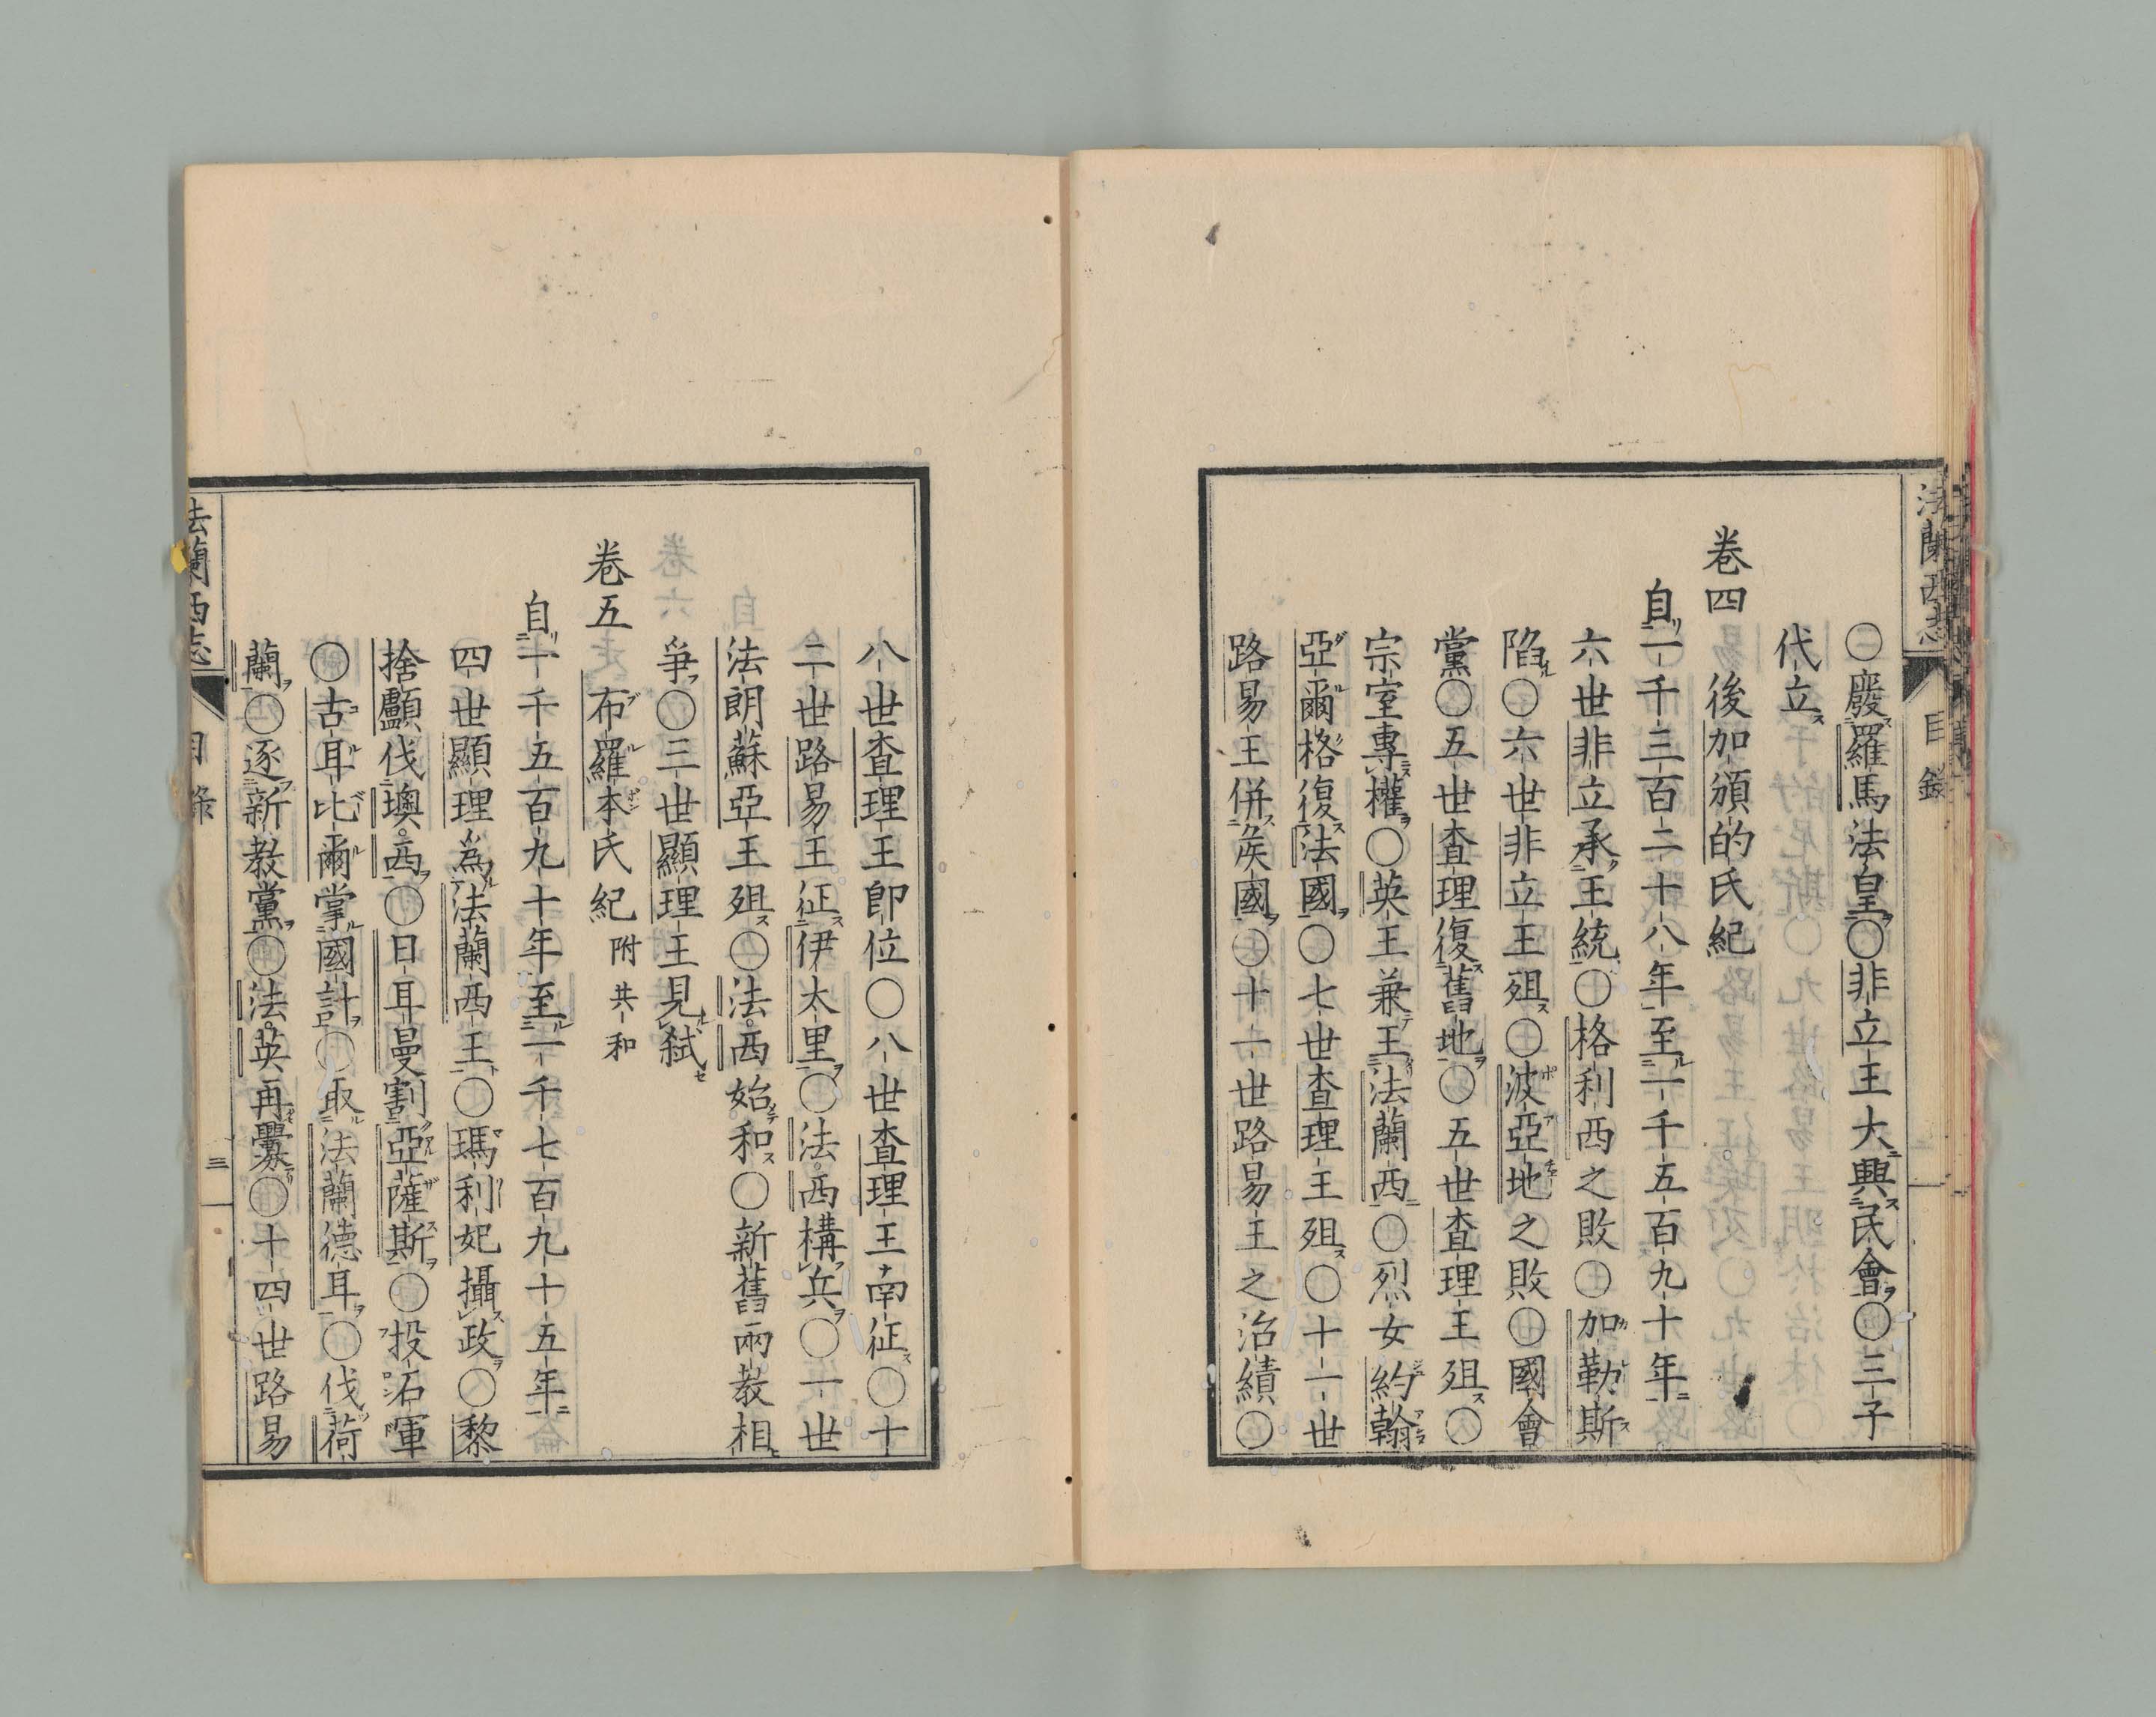 法蘭西志 目錄
○廢羅馬法皇○非立王大興民會○三子
代立
卷四 後加頒的氏紀
自一千三百二十八年至一千五百九十年
六世非立承王統○格利西之敗○加勒斯
陷○六世非立王殂○波亞地之敗○國會
黨○五世查理復舊地○五世查理王殂○
宗室專權○英王兼王法蘭西○烈女約翰
亞爾格復法國○七世查理王殂○十一世
路易王併侯國○十一世路易王之治績○
八世查理王即位○八世查理王南征○十
二世路易王征伊太里○法西構兵○一世
法朗蘇亞王殂○法西始和○新舊兩教相
爭○三世顯理王見弑
卷五 布羅本氏紀 附共和
自一千五百九十年至一千七百九十五年
四世顯理為法蘭西王○瑪利妃攝政○黎
捨顱伐墺西○日耳曼割亞薩斯○投石軍
○古耳比爾掌國計○取法蘭德耳○伐荷
蘭○逐新教黨○法英再釁○十四世路易
法蘭西志 目錄 三